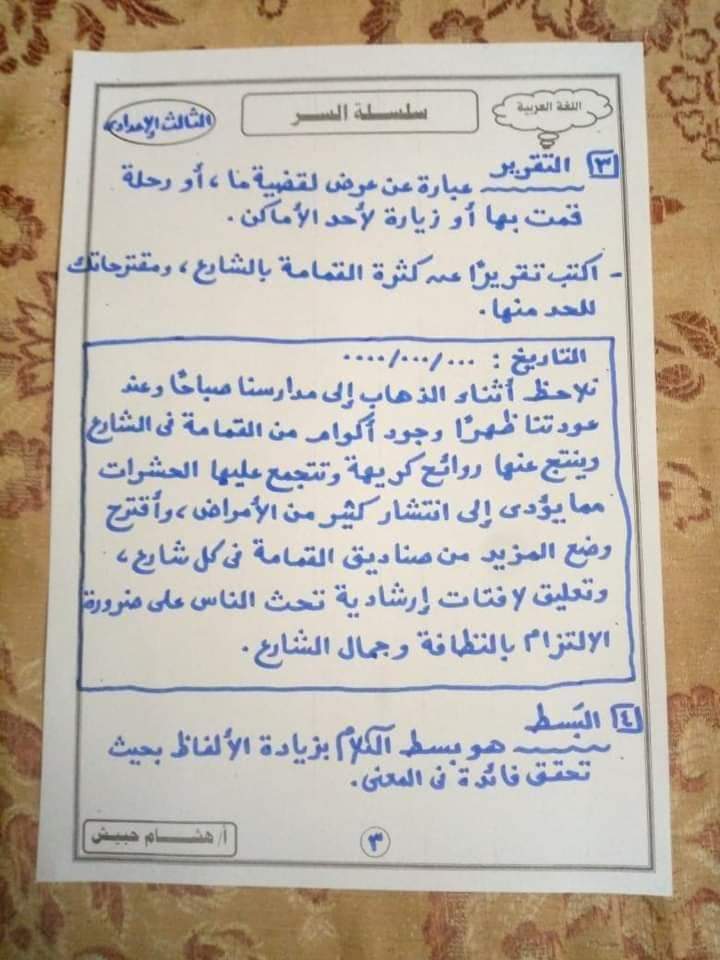 اللغة العربية
سلسلة السر
الثالث الإعدادى
٣ التقرير
عبارة عن عرض لقضية ما ، أو رحلة
قمت بها أو زيارة لأحد الأماكن .
- اكتب تقريرًا عن كثرة القمامة بالشارع ، ومقترحاتك
للحد منها .
التاريخ : .../.../....
نلاحظ أثناء الذهاب إلى مدارسنا صباحًا وعند
عودتنا ظهرًا وجود أكوام من القمامة فى الشارع
وينتج عنها روائح كريهة وتتجمع عليها الحشرات
مما يؤدى إلى انتشار كثير من الأمراض ، وأقترح
وضع المزيد من صناديق القمامة فى كل شارع ،
وتعليق لافتات إرشادية تحث الناس على ضرورة
الالتزام بالنظافة وجمال الشارع .
٤ البَسط
هو بسط الكلام بزيادة الألفاظ بحيث
تحقق فائدة فى المعنى .
أ/ هشام حبيش
٣